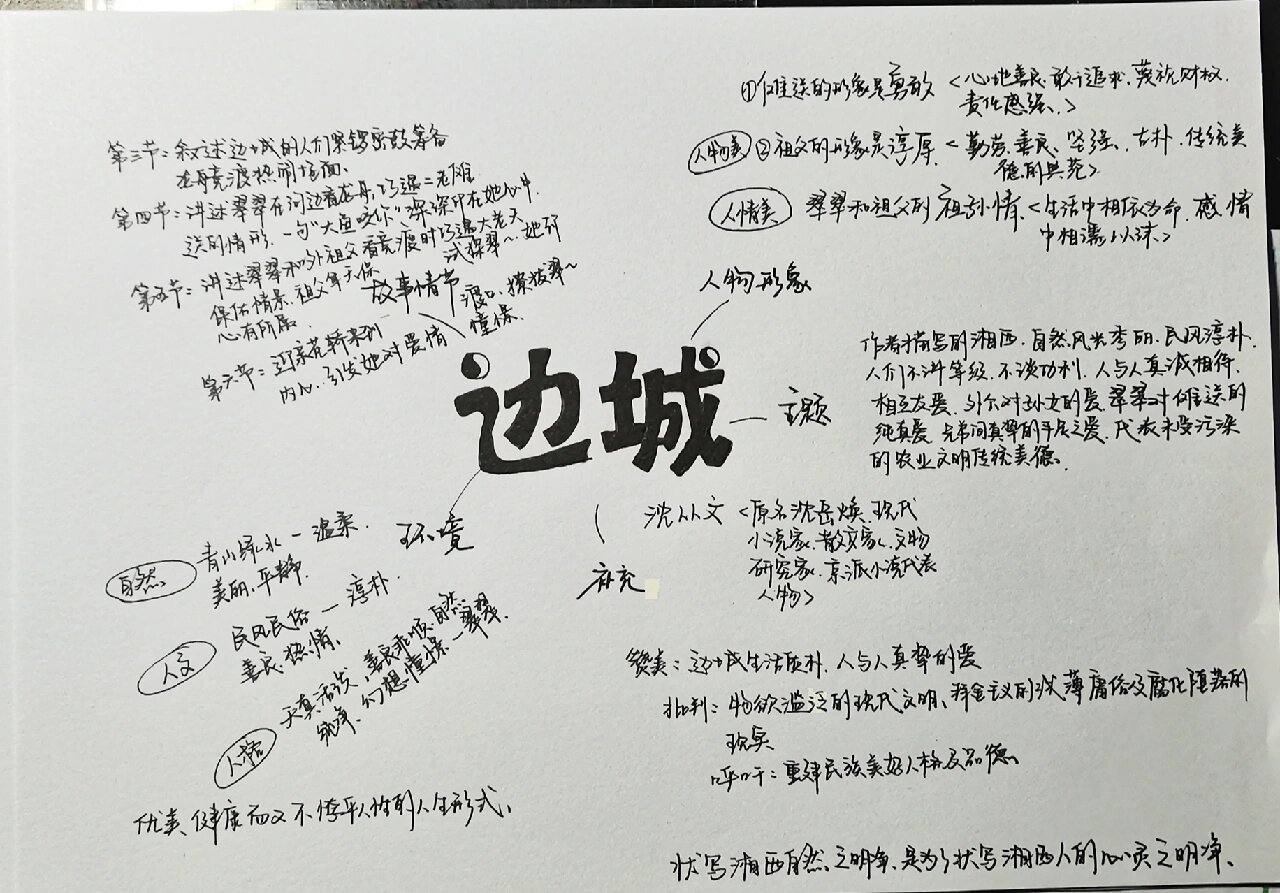 第三节：叙述边城的人们紧锣密鼓筹备
龙舟竞渡热闹场面。
第四节：讲述翠翠在河边看龙舟，巧遇二老傩
送的情形，一句“大鱼咬你”深深印在她心中
第五节：讲述翠翠和外祖父看竞渡时巧遇大老天
保的情景，祖父拿天保
试探翠～她却
心有所属。
第六节：迎亲花轿来到
渡口，撩拨翠～
内心，引发她对爱情
憧憬
故事情节
①傩送的形象是勇敢<心地善良、敢于追求、蔑视财权、
责任感强、>
人物美 ②祖父的形象是淳厚<勤劳、善良、坚强、古朴、传统美
德的典范>
人情美 翠翠和祖父的祖孙情<生活中相依为命，感情
中相濡以沫>
人物形象
边城
主题
作者描写的湘西，自然风光秀丽、民风淳朴，
人们不讲等级，不谈功利，人与人真诚相待，
相互友爱。外公对孙女的爱、翠翠对傩送的
纯真爱、兄弟间真挚的手足之爱，代表未受污染
的农业文明传统美德。
环境
自然 青山绿水—温柔、
美丽、平静
人文 民风民俗—淳朴、
善良、热情、
人格 天真活泼，善良乖顺，自然
纯净、幻想憧憬—翠翠
优美、健康而又不悖乎人性的人生形式、
补充
沈从文<原名沈岳焕、现代
小说家、散文家、文物
研究家、京派小说代表
人物>
赞美：边城生活质朴、人与人真挚的爱
批判：物欲泛滥的现代文明、拜金主义的浅薄庸俗及腐化堕落的
现实
呼吁：重建民族美好人格及品德。
状写湘西自然之明净，是为了状写湘西人的心灵之明净、